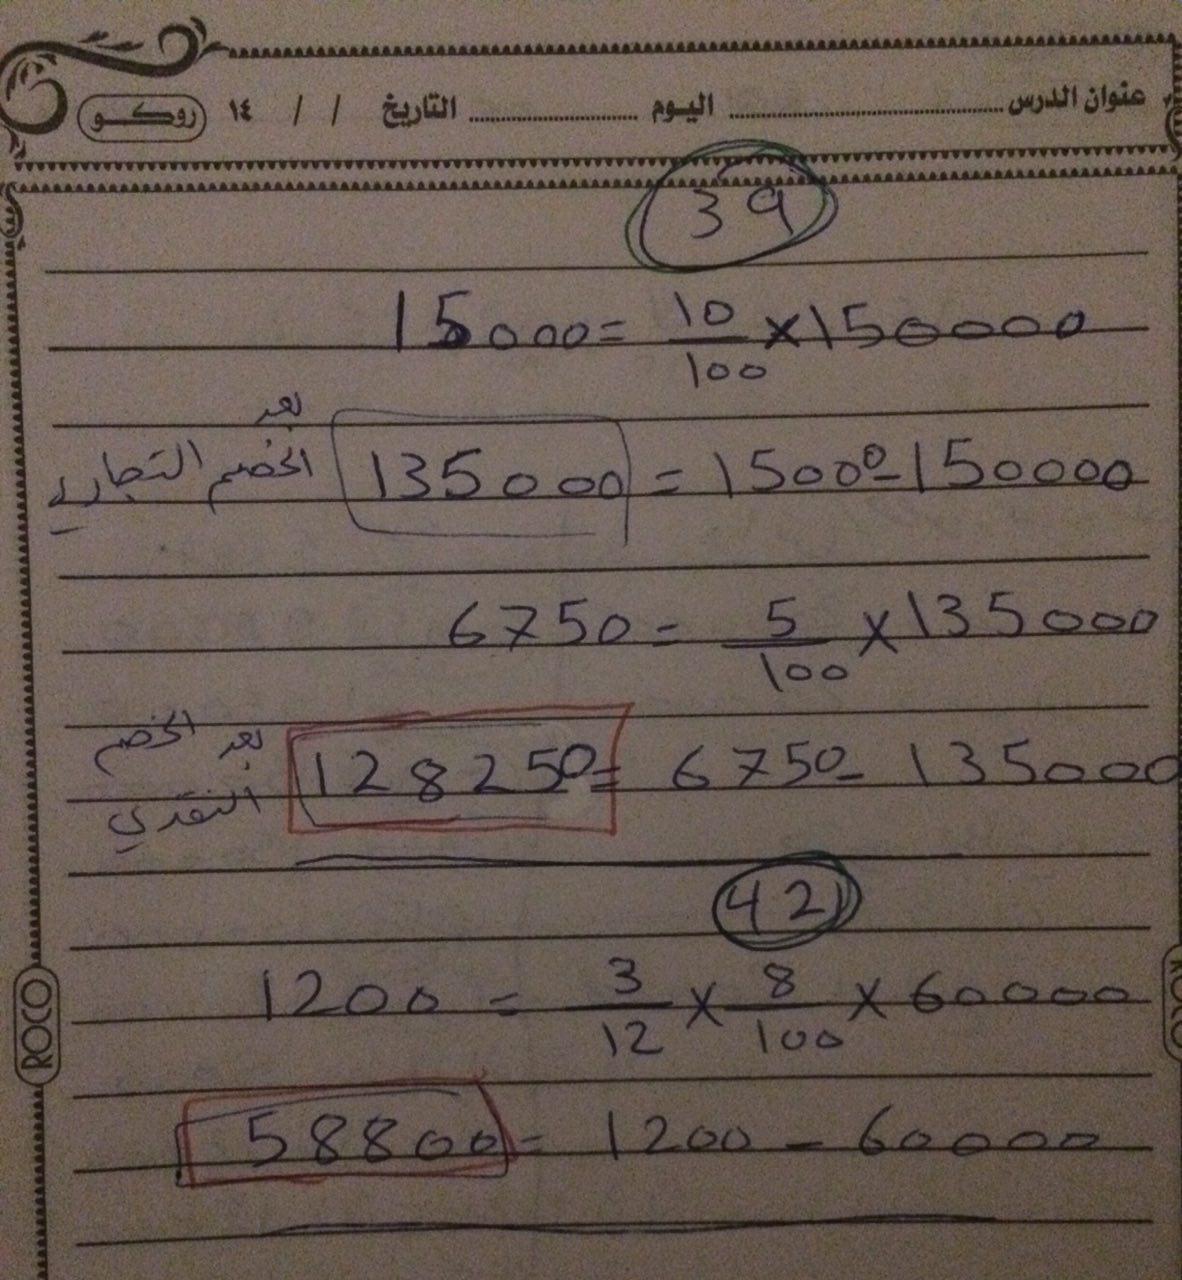 عنوان الدرس ........................ اليوم ................ التاريخ / / ١٤ روكو
39
150000 × 10/100 = 15000
150000 - 15000 = 135000 بعد الخصم التجاري
135000 × 5/100 = 6750
135000 - 6750 = 128250 بعد الخصم النقدي
42
60000 × 8/100 × 3/12 = 1200
60000 - 1200 = 58800
ROCO